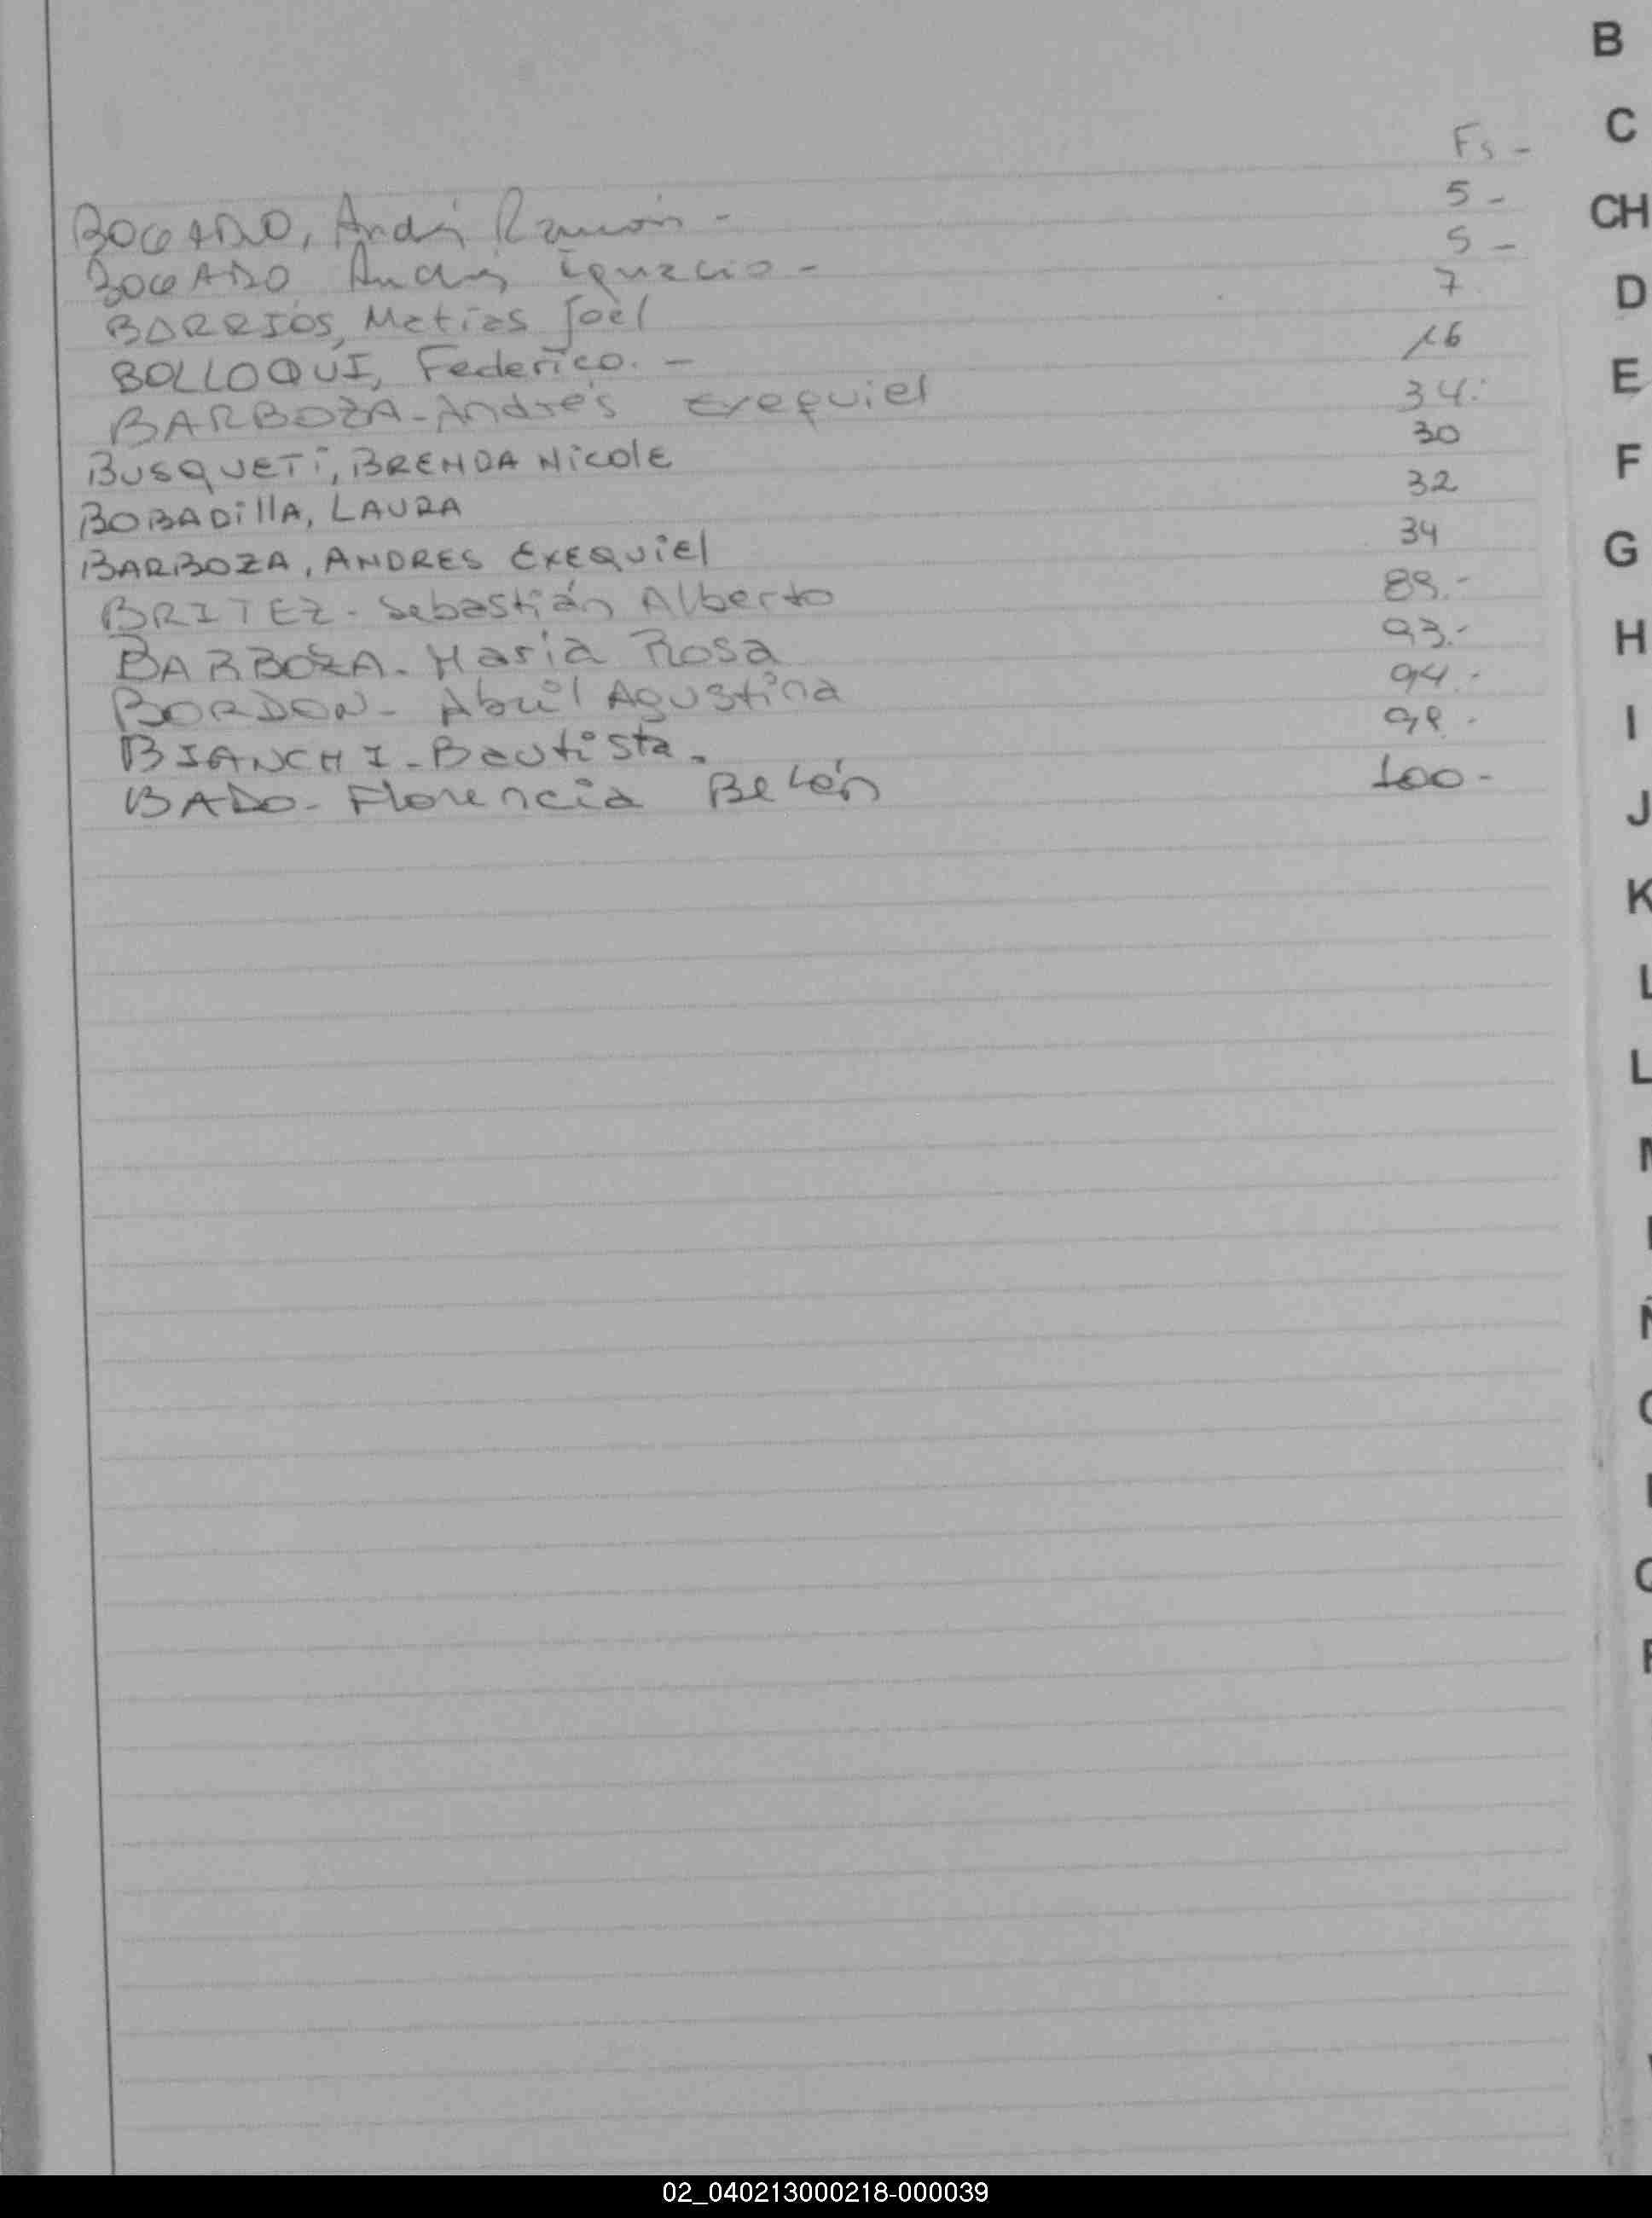 B
C
Fs -
CH
BOGADO, Andrés Ramón - 5 -
BOGADO Andrés Ignacio - 5 -
D
BARRIOS, Matías Joel 7
BOLLOQUI, Federico. - 16
E
BARBOZA - Andrés Exequiel 34.
BUSQUETi, BRENDA Nicole 30
F
BOBADillA, LAURA 32
BARBOZA, ANDRES EXEQUiEl 34
G
BRITEZ - Sebastián Alberto 89.-
BARBOZA - María Rosa 93.-
H
BORDON - Abril Agustina 94.-
BIANCHI - Bautista. 99.
I
BADO - Florencia Belén 100-
J
K
L
L
02_040213000218-000039